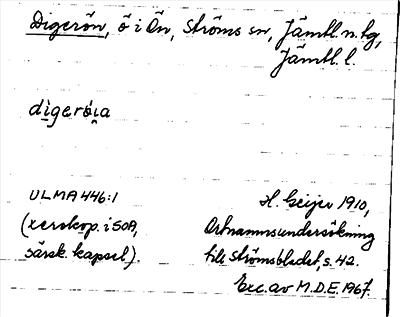 Digerön, ö i Ön, Ströms sn, Jämtl. n. tg,
Jämtl. l.
digeröi̯a
ULMA 446:1
(xerokop. i SOA,
särsk. kapsel).
H. Geijer 1910,
Ortnamnsundersökning
tills Strömsbladet, s. 42.
Exc. av M.D.E. 1967.